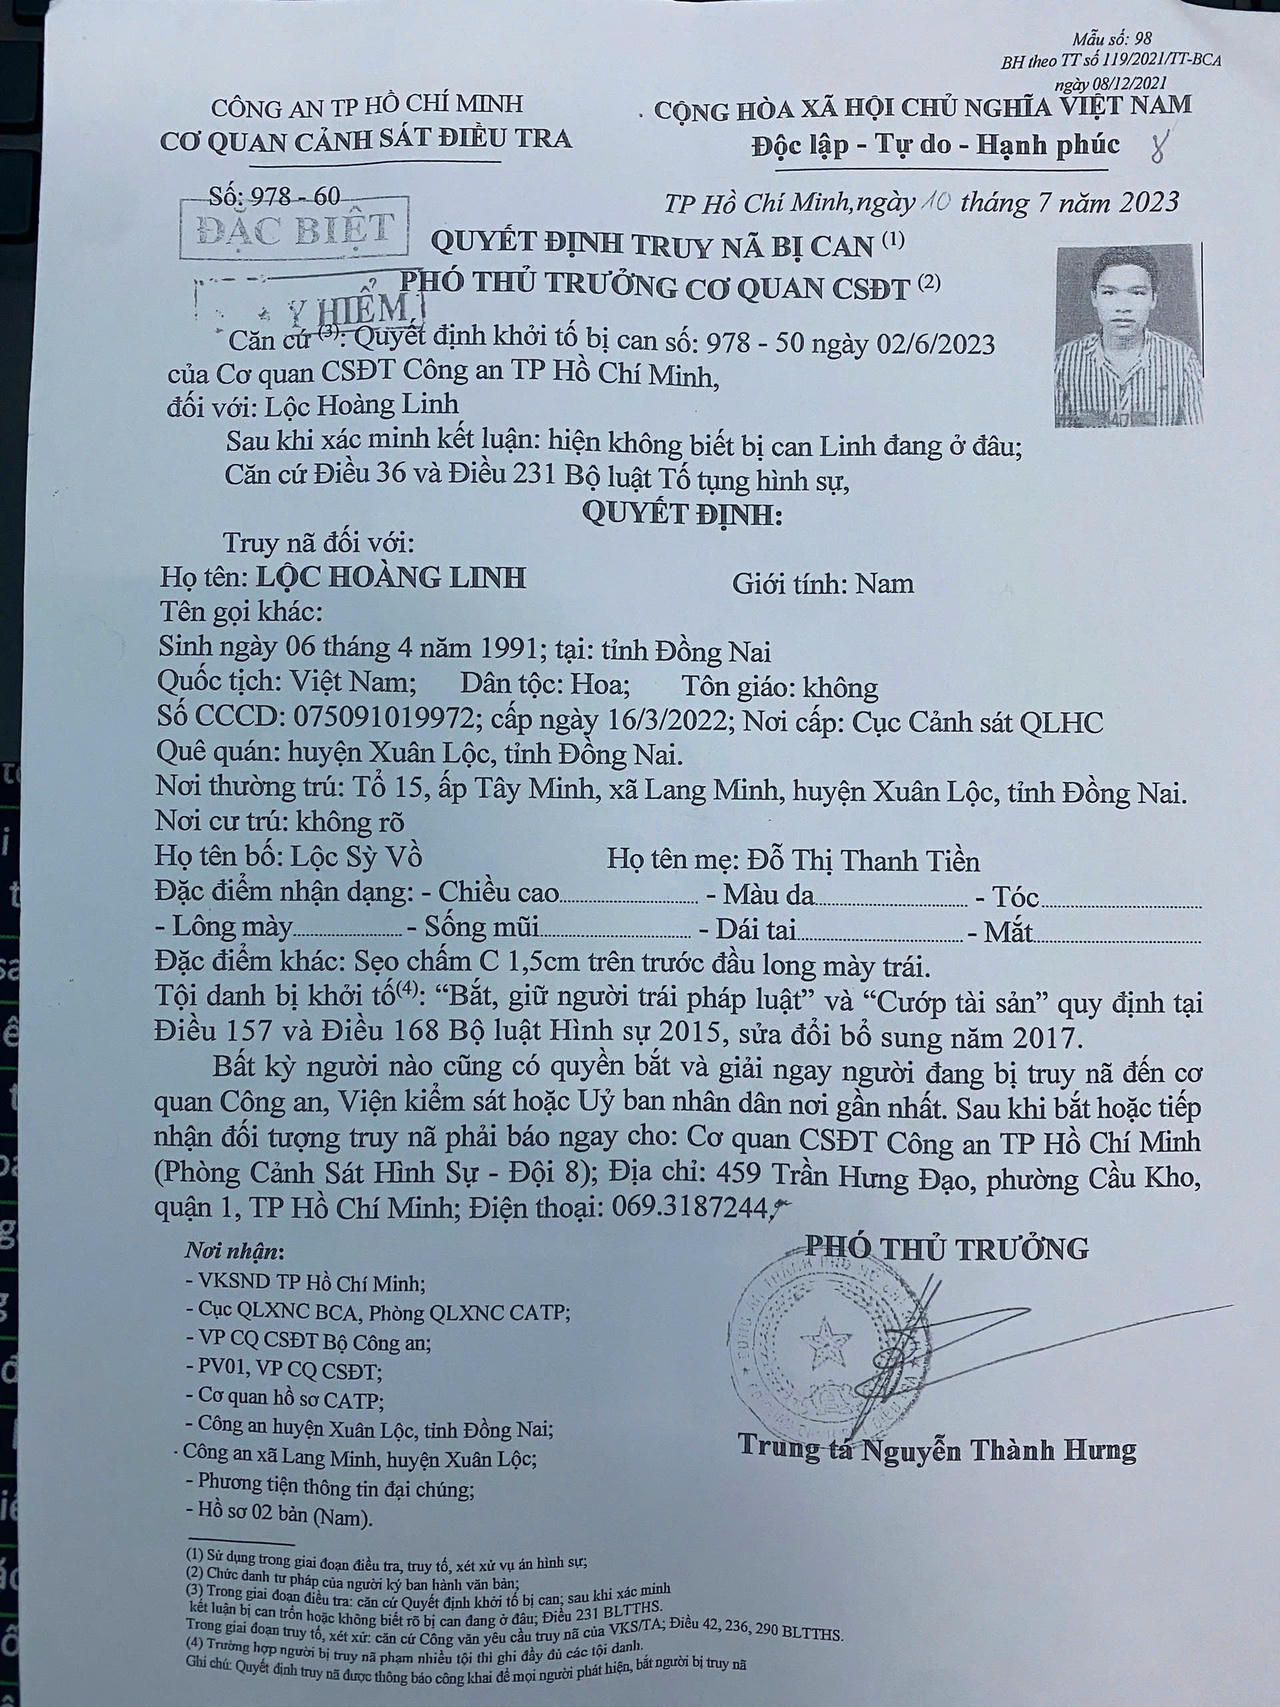 Mẫu số: 98
BH theo TT số 119/2021/TT-BCA
ngày 08/12/2021
CÔNG AN TP HỒ CHÍ MINH
CƠ QUAN CẢNH SÁT ĐIỀU TRA
CỘNG HÒA XÃ HỘI CHỦ NGHĨA VIỆT NAM
Độc lập - Tự do - Hạnh phúc
Số: 978 - 60
TP Hồ Chí Minh, ngày 10 tháng 7 năm 2023
ĐẶC BIỆT
QUYẾT ĐỊNH TRUY NÃ BỊ CAN (1)
PHÓ THỦ TRƯỞNG CƠ QUAN CSĐT (2)
Y HIỂM
Căn cứ (3): Quyết định khởi tố bị can số: 978 - 50 ngày 02/6/2023
của Cơ quan CSĐT Công an TP Hồ Chí Minh,
đối với: Lộc Hoàng Linh
Sau khi xác minh kết luận: hiện không biết bị can Linh đang ở đâu;
Căn cứ Điều 36 và Điều 231 Bộ luật Tố tụng hình sự,
QUYẾT ĐỊNH:
Truy nã đối với:
Họ tên: LỘC HOÀNG LINH Giới tính: Nam
Tên gọi khác:
Sinh ngày 06 tháng 4 năm 1991; tại: tỉnh Đồng Nai
Quốc tịch: Việt Nam; Dân tộc: Hoa; Tôn giáo: không
Số CCCD: 075091019972; cấp ngày 16/3/2022; Nơi cấp: Cục Cảnh sát QLHC
Quê quán: huyện Xuân Lộc, tỉnh Đồng Nai.
Nơi thường trú: Tổ 15, ấp Tây Minh, xã Lang Minh, huyện Xuân Lộc, tỉnh Đồng Nai.
Nơi cư trú: không rõ
Họ tên bố: Lộc Sỳ Vồ Họ tên mẹ: Đỗ Thị Thanh Tiền
Đặc điểm nhận dạng: - Chiều cao.......... - Màu da.......... - Tóc..........
- Lông mày.......... - Sống mũi.......... - Dái tai.......... - Mắt..........
Đặc điểm khác: Sẹo chấm C 1,5cm trên trước đầu long mày trái.
Tội danh bị khởi tố(4): “Bắt, giữ người trái pháp luật” và “Cướp tài sản” quy định tại
Điều 157 và Điều 168 Bộ luật Hình sự 2015, sửa đổi bổ sung năm 2017.
Bất kỳ người nào cũng có quyền bắt và giải ngay người đang bị truy nã đến cơ
quan Công an, Viện kiểm sát hoặc Uỷ ban nhân dân nơi gần nhất. Sau khi bắt hoặc tiếp
nhận đối tượng truy nã phải báo ngay cho: Cơ quan CSĐT Công an TP Hồ Chí Minh
(Phòng Cảnh Sát Hình Sự - Đội 8); Địa chỉ: 459 Trần Hưng Đạo, phường Cầu Kho,
quận 1, TP Hồ Chí Minh; Điện thoại: 069.3187244
Nơi nhận:
- VKSND TP Hồ Chí Minh;
- Cục QLXNC BCA, Phòng QLXNC CATP;
- VP CQ CSĐT Bộ Công an;
- PV01, VP CQ CSĐT;
- Cơ quan hồ sơ CATP;
- Công an huyện Xuân Lộc, tỉnh Đồng Nai;
- Công an xã Lang Minh, huyện Xuân Lộc;
- Phương tiện thông tin đại chúng;
- Hồ sơ 02 bản (Nam).
PHÓ THỦ TRƯỞNG
Trung tá Nguyễn Thành Hưng
(1) Sử dụng trong giai đoạn điều tra, truy tố, xét xử vụ án hình sự;
(2) Chức danh tư pháp của người ký ban hành văn bản;
(3) Trong giai đoạn điều tra: căn cứ Quyết định khởi tố bị can; sau khi xác minh
kết luận bị can trốn hoặc không biết rõ bị can đang ở đâu; Điều 231 BLTTHS.
Trong giai đoạn truy tố, xét xử: căn cứ Công văn yêu cầu truy nã của VKS/TA; Điều 42, 236, 290 BLTTHS.
(4) Trường hợp người bị truy nã phạm nhiều tội thì ghi đầy đủ các tội danh.
Ghi chú: Quyết định truy nã được thông báo công khai để mọi người phát hiện, bắt người bị truy nã